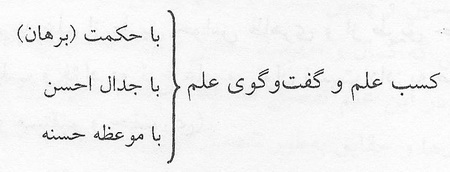 با حکمت (برهان)
کسب علم و گفت‌وگوی علم
با جدال احسن
با موعظه حسنه